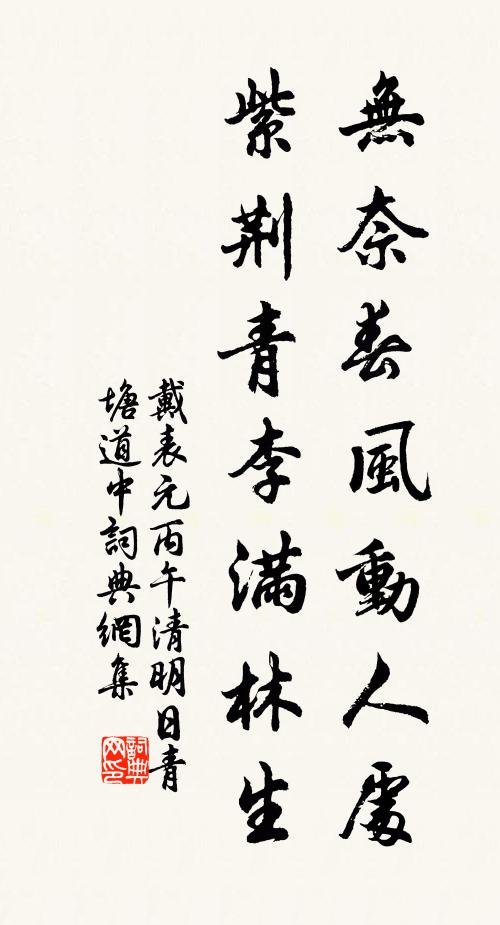 無奈春風動人處
紫荆青李滿林生
戴表元丙午清明日青
塘道中詞典網集
詞典
网印